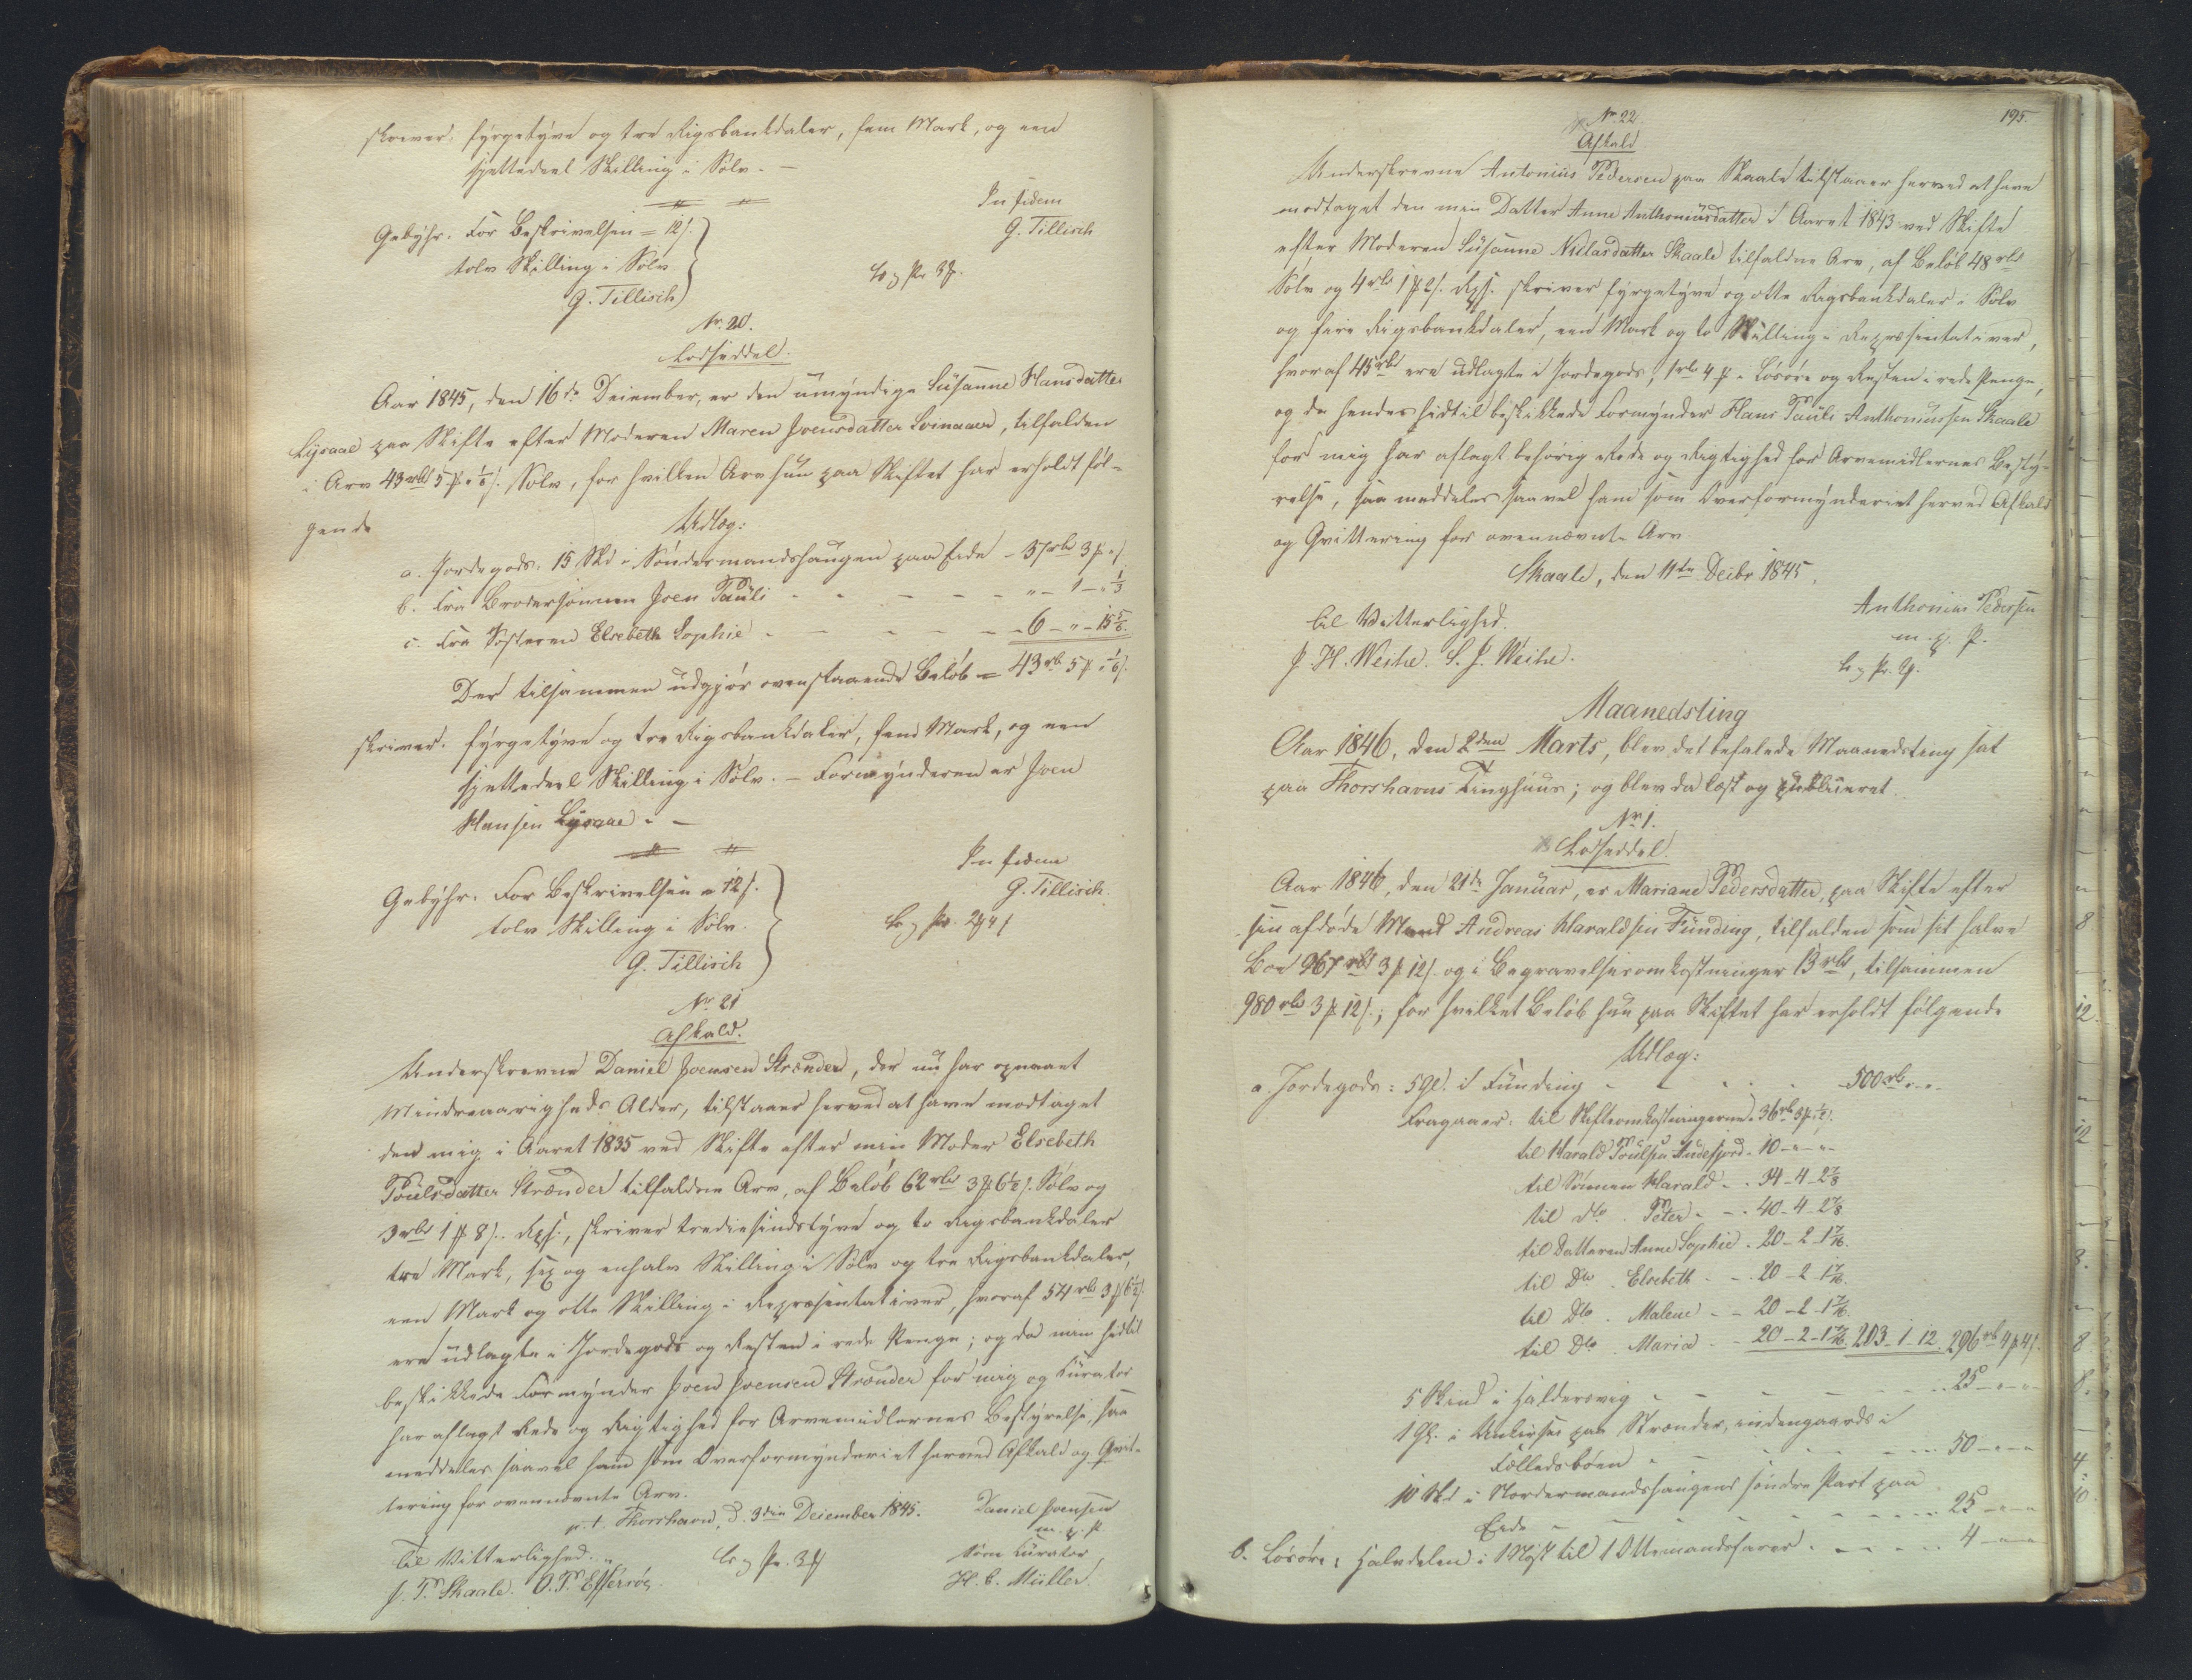 skriver: fyrgetyve og tre Rigsbankdaler, fem Mark, og een
sjettedeel Skilling i Sølv. —
In fidem
G. Tillisch
Gebyhr. For Beskrivelsen = 12 s.
tolv Skilling i Sølv
G. Tillisch
No. 20.
Lodseddel.
Aar 1845, den 16de December, er den umyndige Susanne Hansdatter
Lysaae paa Skifte efter Moderen Maren Joensdatter Svinaaer, tilfalden
i Arv 43 rbd 5 # 1/6 s. Sølv, for hvilken Arv hun paa Skiftet har erholdt føl-
gende
Udlæg:
a. Jordegods: 15 Skd i Søndermandshaugen paa Eide - 37 rbd 3 # " s
b. Fra Brodersønnen Joen Pauli - - - - " - 1 - " 1/3
c. Fra Søsteren Elsebeth Sophie - - - - 6 - " - 15 5/6
Der tilsammen udgjør ovenstaaende Beløb = 43 rb 5 # 1/6 s.
skriver: fyrgetyve og tre Rigsbankdaler, fem Mark, og een
sjettedeel Skilling i Sølv. — Formynderen er Joen
Hansen Lysaae. —
In fidem
G. Tillisch.
Gebyhr. For Beskrivelsen = 12 s.
tolv Skilling i Sølv.
G. Tillisch
No. 21
Afkald.
Underskrevne Daniel Joensen Strænder, der nu har opnaaet
Mindreaarigheds Alder, tilstaaer herved at have modtaget
den mig i Aaret 1835 ved Skifte efter min Moder Elsebeth
Poulsdatter Strænder tilfaldne Arv, af Beløb 62 rbd 3 # 6 1/2 s. Sølv og
3 rbd 1 # 8 s. Rps., skriver trediesindstyve og to Rigsbankdaler
tre Mark, sex og enhalv Skilling i Sølv og tre Rigsbankdaler,
een Mark og otte Skilling i Repræsentativer, hvoraf 54 rbd 3 # 6 1/2 s.
ere udlagte i Jordegods og Resten i rede Penge; og da min hidtil
beskikkede Formynder Joen Joensen Strænder for mig og Curator
har aflagt Rede og Rigtighed for Arvemidlernes Bestyrelse, saa
meddeles saavel ham som Overformynderiet herved Afkald og Qvit-
tering for ovennævnte Arv.
p. t. Thorshavn, d. 3die December 1845.
Daniel Joensen
m. p. P.
Som Curator,
H. C. Müller
Til Vitterlighed.
J. P. Skaale. O. P. Effersøe.
195.
No. 22
Afkald
Underskrevne Antonius Pedersen paa Skaale tilstaaer herved at have
modtaget den min Datter Anne Anthoniusdatter i Aaret 1843 ved Skifte
efter Moderen Susanne Niclasdatter Skaale tilfaldne Arv, af Beløb 48 rbd
Sølv og 4 rbd 1 # 2 s. Rps. skriver fyrgetyve og otte Rigsbankdaler i Sølv
og fire Rigsbankdaler, een Mark og to Skilling i Repræsentativer,
hvoraf 45 rbd ere udlagte i Jordegods, 1 rbd 4 # i Løsøre og Resten i rede Penge,
og da hendes hidtil beskikkede Formynder Hans Pauli Anthoniussen Skaale
for mig har aflagt behørig Rede og Rigtighed for Arvemidlernes Besty-
relse, saa meddeles saavel ham som Overformynderiet herved Afkald
og Qvittering for ovennævnte Arv
Skaale, den 11te Decbr 1845.
Anthonius Pedersen
m. p. P.
Til Vitterlighed.
J. H. Weihe. S. J. Weihe.
Maanedsting
Aar 1846, den 2den Marts, blev det befalede Maanedsting sat
paa Thorshavns Tinghuus; og blev da læst og publiceret.
No 1.
Lodseddel.
Aar 1846, den 21de Januar, er Mariane Pedersdatter, paa Skifte efter
sin afdøde Mand Andreas Haraldsen Funding, tilfalden som sit halve
Boe 967 rbd 3 # 12 s. og i Begravelsesomkostninger 13 rbd, tilsammen
980 rbd 3 # 12 s.; for hvilket Beløb hun paa Skiftet har erholdt følgende
Udlæg:
a. Jordegods: 5 Gl. i Funding - - - - 500 rb " "
Fragaaer: til Skifteomkostningerne 36 rb 3 # 1/2 s.
til Harald Poulsen Andefjord - 10 - " - "
til Sønnen Harald - . 34 - 4 - 2 7/8
til do. Peter - . 40 - 4 - 2 7/8
til Datteren Anne Sophie . 20 - 2 - 1 7/16
til Do. Elsebeth - . 20 - 2 - 1 7/16.
til Do. Malene - - 20 - 2 - 1 7/16.
til Do. Maria - 20 - 2 - 1 7/16. 203 - 1 - 12. 296 rb 4 # 4 s.
5 Skind i Haldersvig - - - - 25 - " - "
1 Gl. i paa Strænder, indengaards i
Fælledsbøen - - - - 50 - " - "
10 Skd i Nordermandshaugens søndre Part paa
Eide - - - - 25 - " - "
b. Løsøre: Halvdelen i 1 Nøst til 1 Ottemandsfarer - - - - 4 - " - "